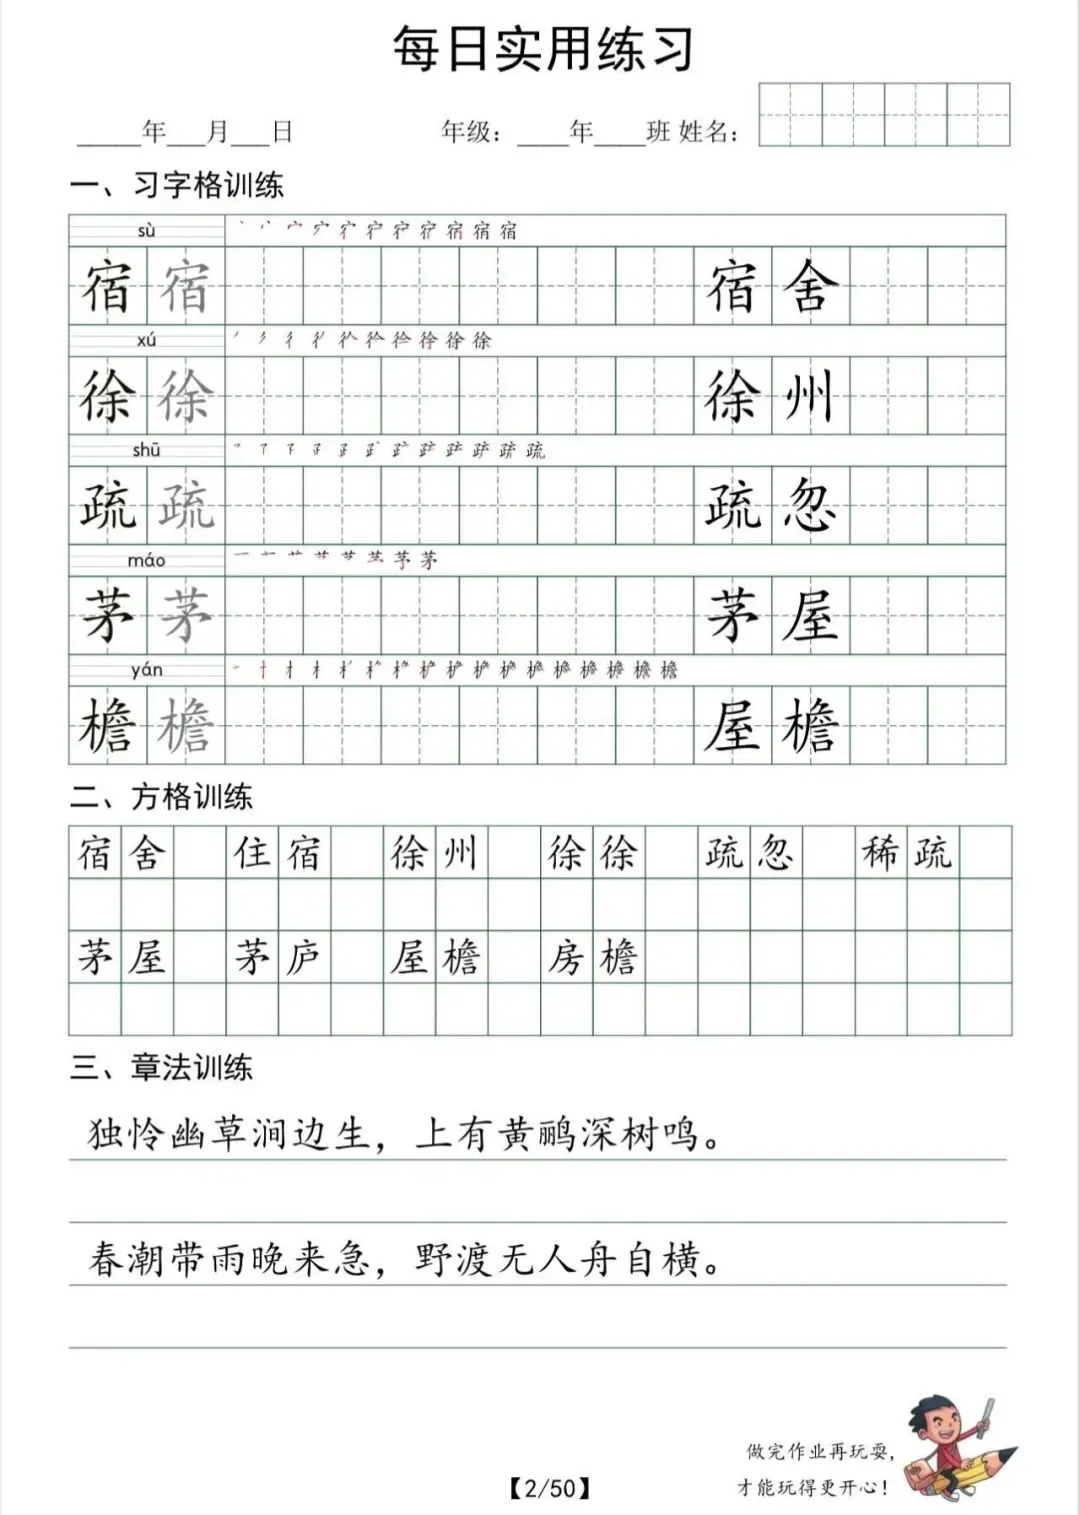 每日实用练习
_____年___月___日 年级：____年____班 姓名：
一、习字格训练
sù
宿 宿 宿 舍
xú
徐 徐 徐 州
shū
疏 疏 疏 忽
máo
茅 茅 茅 屋
yán
檐 檐 屋 檐
二、方格训练
宿舍 住宿 徐州 徐徐 疏忽 稀疏
茅屋 茅庐 屋檐 房檐
三、章法训练
独怜幽草涧边生，上有黄鹂深树鸣。
春潮带雨晚来急，野渡无人舟自横。
做完作业再玩耍，
才能玩得更开心！
【2/50】